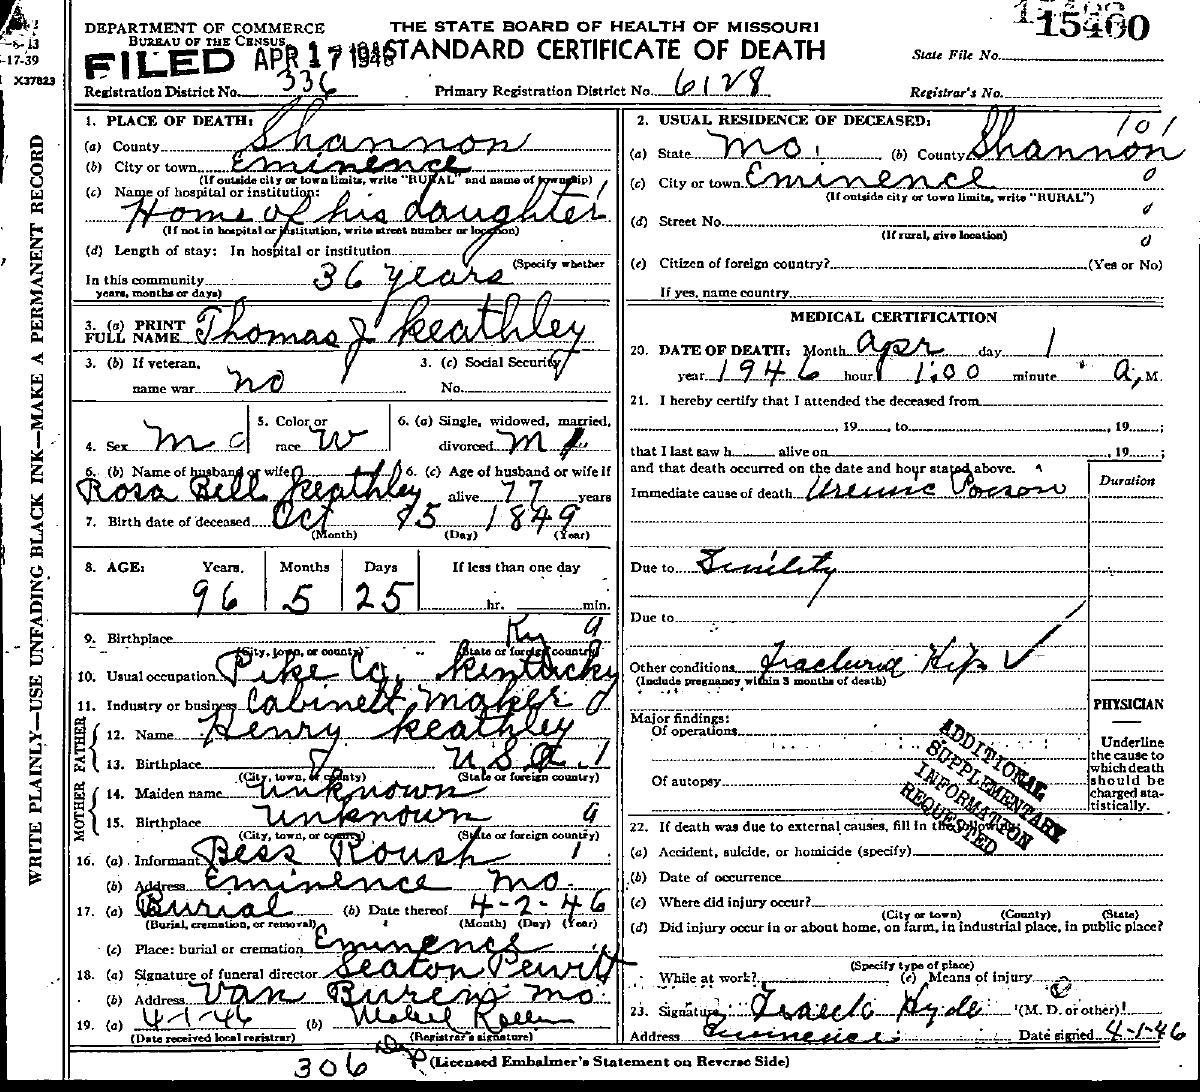 DEPARTMENT OF COMMERCE
BUREAU OF THE CENSUS
THE STATE BOARD OF HEALTH OF MISSOURI
STANDARD CERTIFICATE OF DEATH
FILED APR 17 1946
15400
State File No.
-17-39
X37823
Registration District No. 336
Primary Registration District No. 6128
Registrar's No.
WRITE PLAINLY—USE UNFADING BLACK INK—MAKE A PERMANENT RECORD
1. PLACE OF DEATH:
(a) County Shannon
(b) City or town Eminence
(If outside city or town limits, write "RURAL" and name of township)
(c) Name of hospital or institution:
Home of his daughter
(If not in hospital or institution, write street number or location)
(d) Length of stay: In hospital or institution
(Specify whether
In this community 36 years
years, months or days)
3. (a) PRINT FULL NAME Thomas J Keathley
3. (b) If veteran, name war no
3. (c) Social Security No.
4. Sex M
5. Color or race W
6. (a) Single, widowed, married, divorced M
6. (b) Name of husband or wife Rosa Bell Keathley
6. (c) Age of husband or wife if alive 77 years
7. Birth date of deceased Oct 1849
(Month) (Day) (Year)
8. AGE: Years Months Days If less than one day
96 5 25 hr. min.
9. Birthplace Ky 9
(City, town, or county) (State or foreign country)
Pike Co. Kentucky
10. Usual occupation
11. Industry or business Cabinett maker
FATHER
12. Name Henry Keathley
13. Birthplace U.S.A. 1
(City, town, or county) (State or foreign country)
MOTHER
14. Maiden name Unknown
15. Birthplace Unknown 9
(City, town, or county) (State or foreign country)
16. (a) Informant Bess Roush
(b) Address Eminence Mo.
17. (a) Burial (b) Date thereof 4-2-46
(Burial, cremation, or removal) (Month) (Day) (Year)
(c) Place: burial or cremation Eminence
18. (a) Signature of funeral director Seaton Pewitt
(b) Address Van Buren, Mo.
19. (a) 4-1-46 (b) Mabel
(Date received local registrar) (Registrar's signature)
2. USUAL RESIDENCE OF DECEASED: 101
(a) State Mo. (b) County Shannon
(c) City or town Eminence 0
(If outside city or town limits, write "RURAL")
(d) Street No.
(If rural, give location)
(e) Citizen of foreign country? (Yes or No)
If yes, name country
MEDICAL CERTIFICATION
20. DATE OF DEATH: Month Apr day 1
year 1946 hour 1:00 minute a, M.
21. I hereby certify that I attended the deceased from
, 19 , to , 19 ;
that I last saw h alive on , 19 ;
and that death occurred on the date and hour stated above.
Duration
Immediate cause of death Uremic Poison
Due to Sinility
Due to
Other conditions Fractured Hip
(Include pregnancy within 3 months of death)
Major findings:
Of operations
Of autopsy
PHYSICIAN
Underline the cause to which death should be charged statistically.
ADDITIONAL SUPPLEMENTARY INFORMATION REQUESTED
22. If death was due to external causes, fill in the following:
(a) Accident, suicide, or homicide (specify)
(b) Date of occurrence
(c) Where did injury occur?
(City or town) (County) (State)
(d) Did injury occur in or about home, on farm, in industrial place, in public place?
(Specify type of place)
While at work? (e) Means of injury
23. Signature Hyde (M. D. or other)
Address Eminence Date signed 4-1-46
306
(Licensed Embalmer's Statement on Reverse Side)